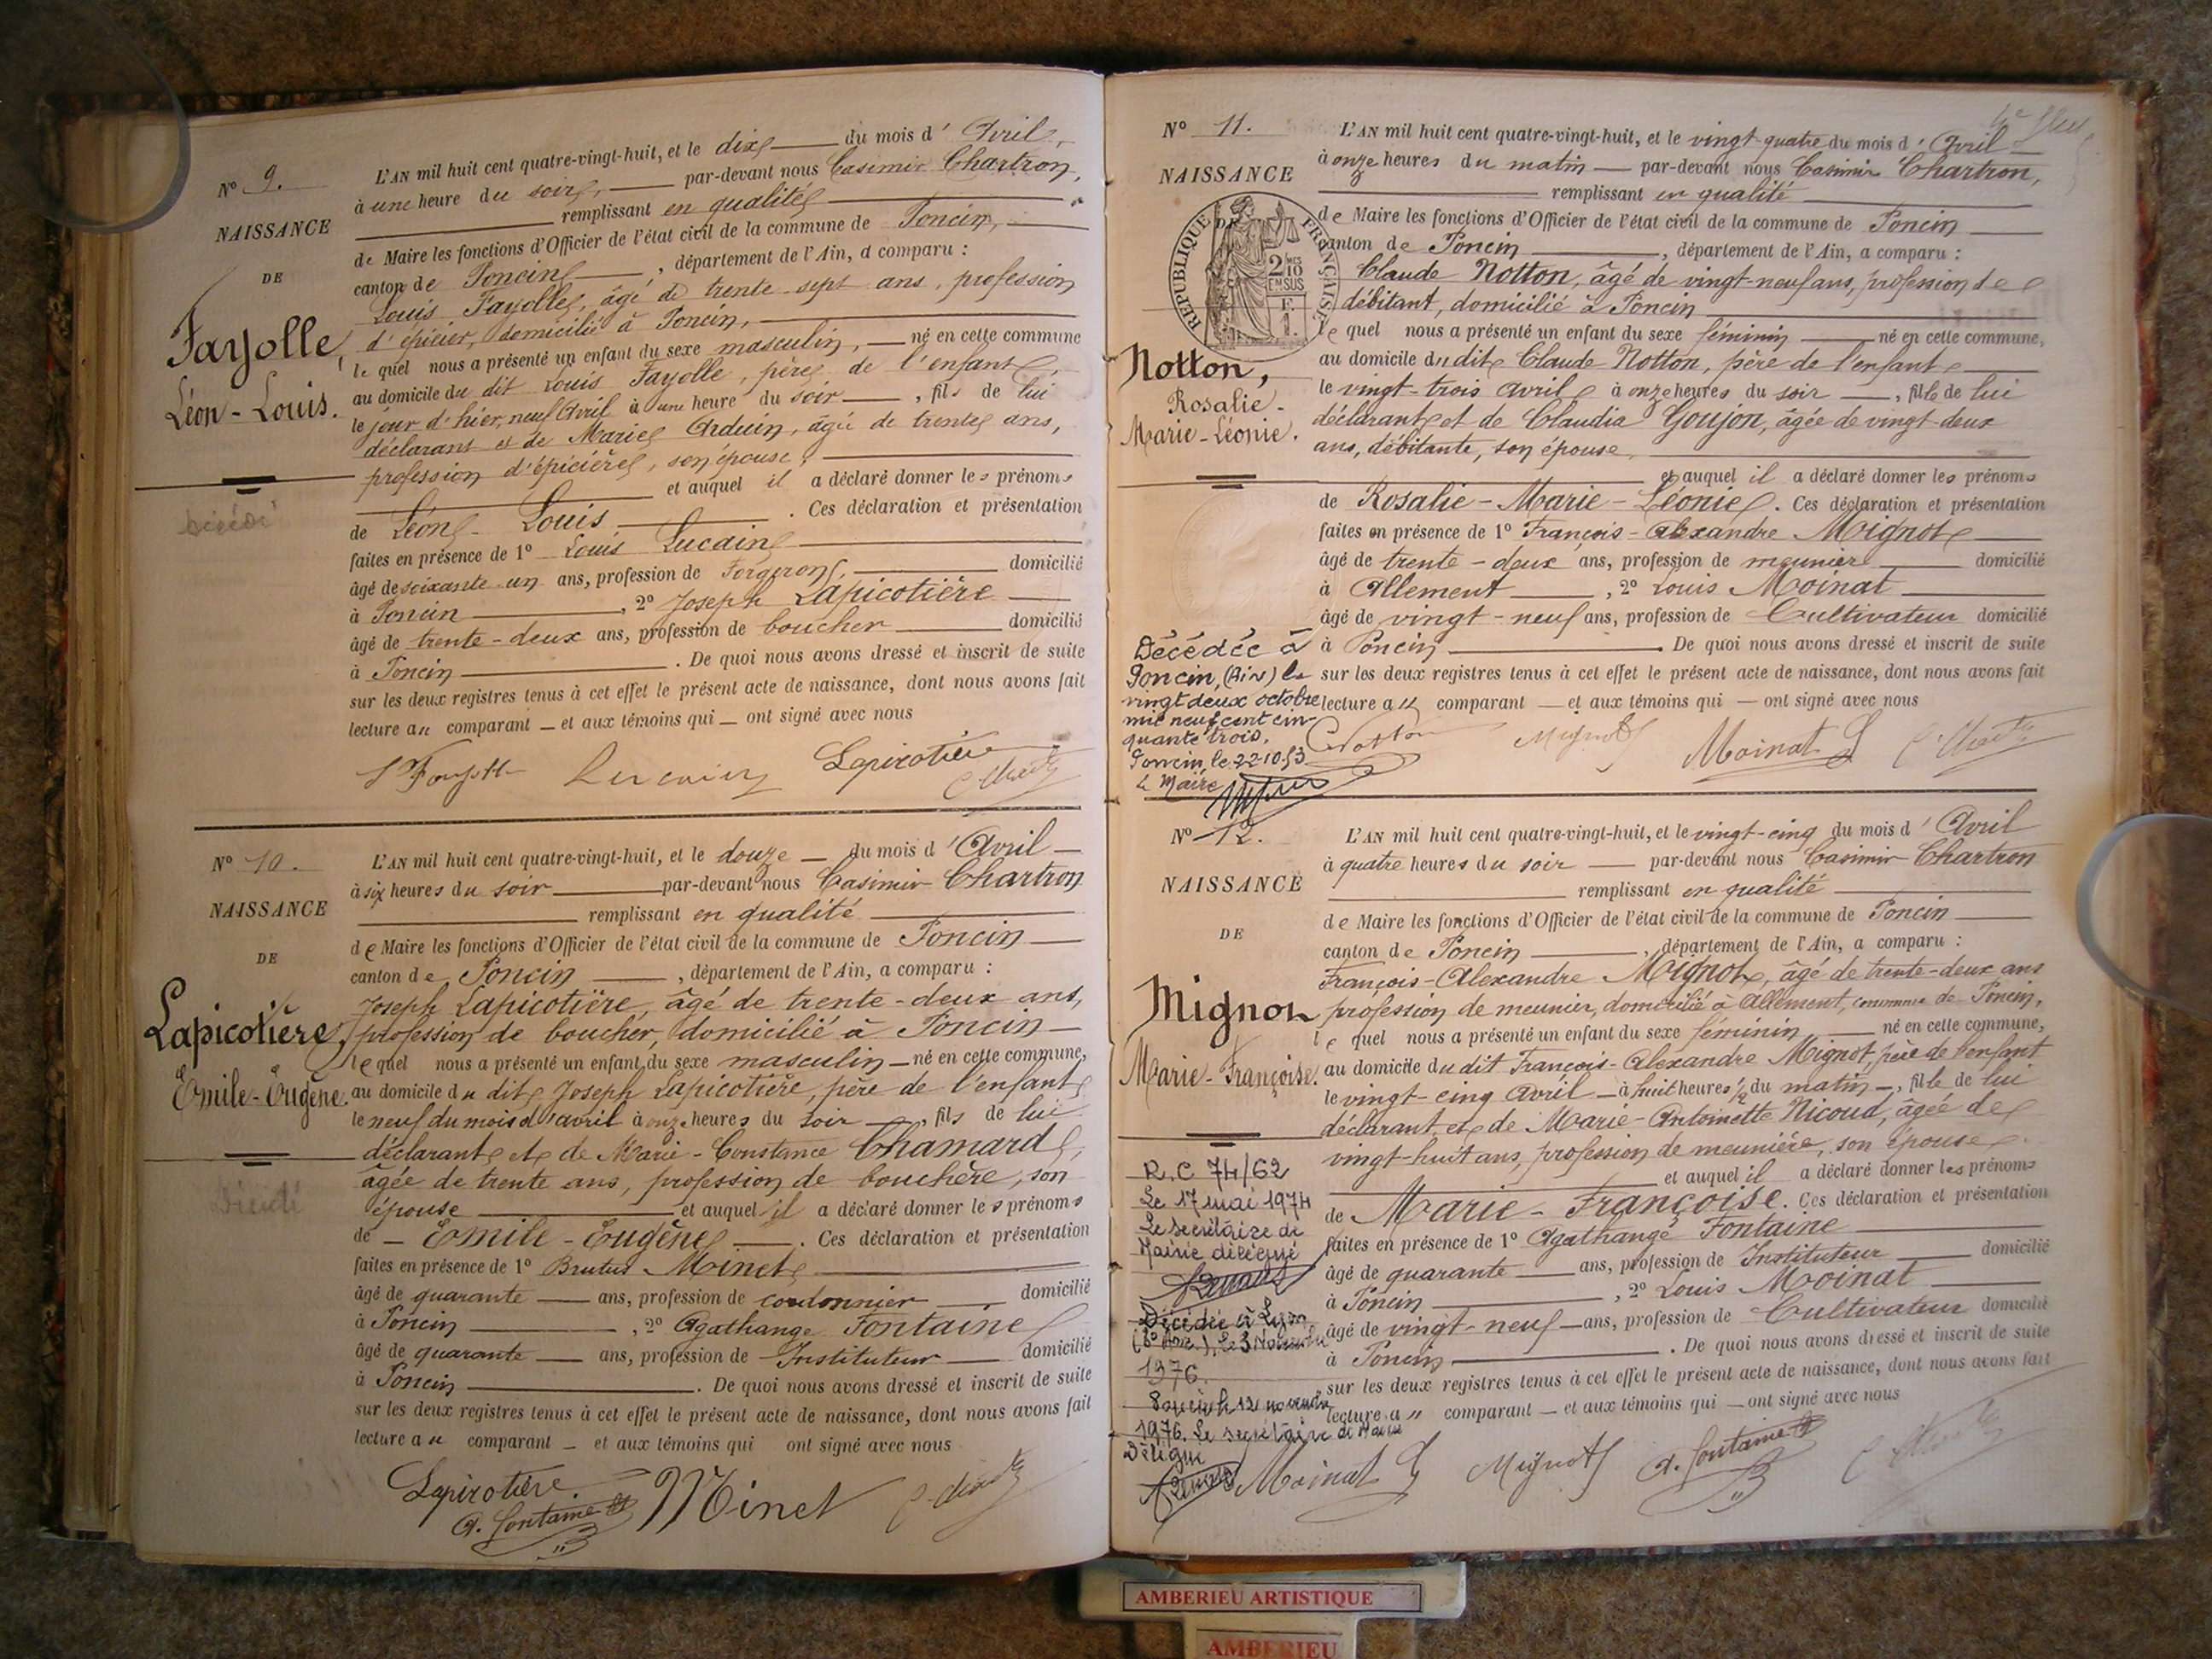 Nº 9.
NAISSANCE
DE
Fayolle,
Léon-Louis.
Décédé
L'AN mil huit cent quatre-vingt-huit, et le dix du mois d'Avril,
à une heure du soir, par-devant nous Casimir Chartron,
remplissant en qualité
de Maire les fonctions d'Officier de l'état civil de la commune de Poncin,
canton de Poncin, département de l'Ain, a comparu :
Louis Fayolle, âgé de trente-sept ans, profession
d'épicier, domicilié à Poncin,
lequel nous a présenté un enfant du sexe masculin, né en cette commune
au domicile du dit Louis Fayolle, père de l'enfant,
le jour d'hier, neuf Avril à une heure du soir, fils de lui
déclarant et de Marie Arduin, âgée de trente ans,
profession d'épicière, son épouse,
et auquel il a déclaré donner les prénoms
de Léon-Louis. Ces déclaration et présentation
faites en présence de 1º Louis Lucain
âgé de soixante-un ans, profession de Forgeron, domicilié
à Poncin, 2º Joseph Lapicotière
âgé de trente-deux ans, profession de boucher domicilié
à Poncin. De quoi nous avons dressé et inscrit de suite
sur les deux registres tenus à cet effet le présent acte de naissance, dont nous avons fait
lecture au comparant et aux témoins qui ont signé avec nous
Lucain Lapicotière
Nº 10.
NAISSANCE
DE
Lapicotière,
Emile-Eugène.
Décédé
L'AN mil huit cent quatre-vingt-huit, et le douze du mois d'Avril
à six heures du soir par-devant nous Casimir Chartron
remplissant en qualité
de Maire les fonctions d'Officier de l'état civil de la commune de Poncin
canton de Poncin, département de l'Ain, a comparu :
Joseph Lapicotière, âgé de trente-deux ans,
profession de boucher, domicilié à Poncin
lequel nous a présenté un enfant du sexe masculin né en cette commune,
au domicile du dit Joseph Lapicotière, père de l'enfant
le neuf du mois d'avril à onze heures du soir, fils de lui
déclarant et de Marie-Constance Chamard,
âgée de trente ans, profession de bouchère, son
épouse et auquel il a déclaré donner les prénoms
de Emile-Eugène. Ces déclaration et présentation
faites en présence de 1º Brutus Minet
âgé de quarante ans, profession de cordonnier domicilié
à Poncin, 2º Agathange Fontaine
âgé de quarante ans, profession de Instituteur domicilié
à Poncin. De quoi nous avons dressé et inscrit de suite
sur les deux registres tenus à cet effet le présent acte de naissance, dont nous avons fait
lecture au comparant et aux témoins qui ont signé avec nous
Lapicotière Minet
A. Fontaine
Nº 11.
NAISSANCE
RÉPUBLIQUE FRANÇAISE
2 10 MES EN SUS
F. 1.
Notton,
Rosalie-
Marie-Léonie.
Décédée à
Poncin, (Ain) le
vingt deux octobre
mil neuf cent cin-
quante trois.
Poncin, le 22-10-53
Le Maire
L'AN mil huit cent quatre-vingt-huit, et le vingt-quatre du mois d'Avril
à onze heures du matin par-devant nous Casimir Chartron,
remplissant en qualité
de Maire les fonctions d'Officier de l'état civil de la commune de Poncin
canton de Poncin, département de l'Ain, a comparu :
Claude Notton, âgé de vingt-neuf ans, profession de
débitant, domicilié à Poncin
lequel nous a présenté un enfant du sexe féminin né en cette commune,
au domicile du dit Claude Notton, père de l'enfant
le vingt-trois avril à onze heures du soir, fille de lui
déclarant et de Claudia Goujon, âgée de vingt-deux
ans, débitante, son épouse,
et auquel il a déclaré donner les prénoms
de Rosalie-Marie-Léonie. Ces déclaration et présentation
faites en présence de 1º François-Alexandre Mignot
âgé de trente-deux ans, profession de meunier domicilié
à Allement, 2º Louis Moinat
âgé de vingt-neuf ans, profession de Cultivateur domicilié
à Poncin. De quoi nous avons dressé et inscrit de suite
sur les deux registres tenus à cet effet le présent acte de naissance, dont nous avons fait
lecture au comparant et aux témoins qui ont signé avec nous
Notton Mignot Moinat L
Nº 12.
NAISSANCE
DE
Mignot
Marie-Françoise.
R.C 74/62
Le 17 mai 1974
Le secrétaire de
Mairie délégué
Décédée à Lyon
Le 3 Novembre
1976.
Poncin le 12 novembre
1976. Le secrétaire de Mairie
Délégué
L'AN mil huit cent quatre-vingt-huit, et le vingt-cinq du mois d'Avril
à quatre heures du soir par-devant nous Casimir Chartron
remplissant en qualité
de Maire les fonctions d'Officier de l'état civil de la commune de Poncin
canton de Poncin, département de l'Ain, a comparu :
François-Alexandre Mignot, âgé de trente-deux ans
profession de meunier, domicilié à Allement, commune de Poncin,
lequel nous a présenté un enfant du sexe féminin, né en cette commune,
au domicile du dit François-Alexandre Mignot, père de l'enfant
le vingt-cinq Avril à huit heures 1/2 du matin, fille de lui
déclarant et de Marie-Antoinette Nicoud, âgée de
vingt-huit ans, profession de meunière, son épouse
et auquel il a déclaré donner les prénoms
de Marie-Françoise. Ces déclaration et présentation
faites en présence de 1º Agathange Fontaine
âgé de quarante ans, profession de Instituteur domicilié
à Poncin, 2º Louis Moinat
âgé de vingt-neuf ans, profession de Cultivateur domicilié
à Poncin. De quoi nous avons dressé et inscrit de suite
sur les deux registres tenus à cet effet le présent acte de naissance, dont nous avons fait
lecture au comparant et aux témoins qui ont signé avec nous
Moinat L Mignot A. Fontaine
AMBERIEU ARTISTIQUE
AMBERIEU